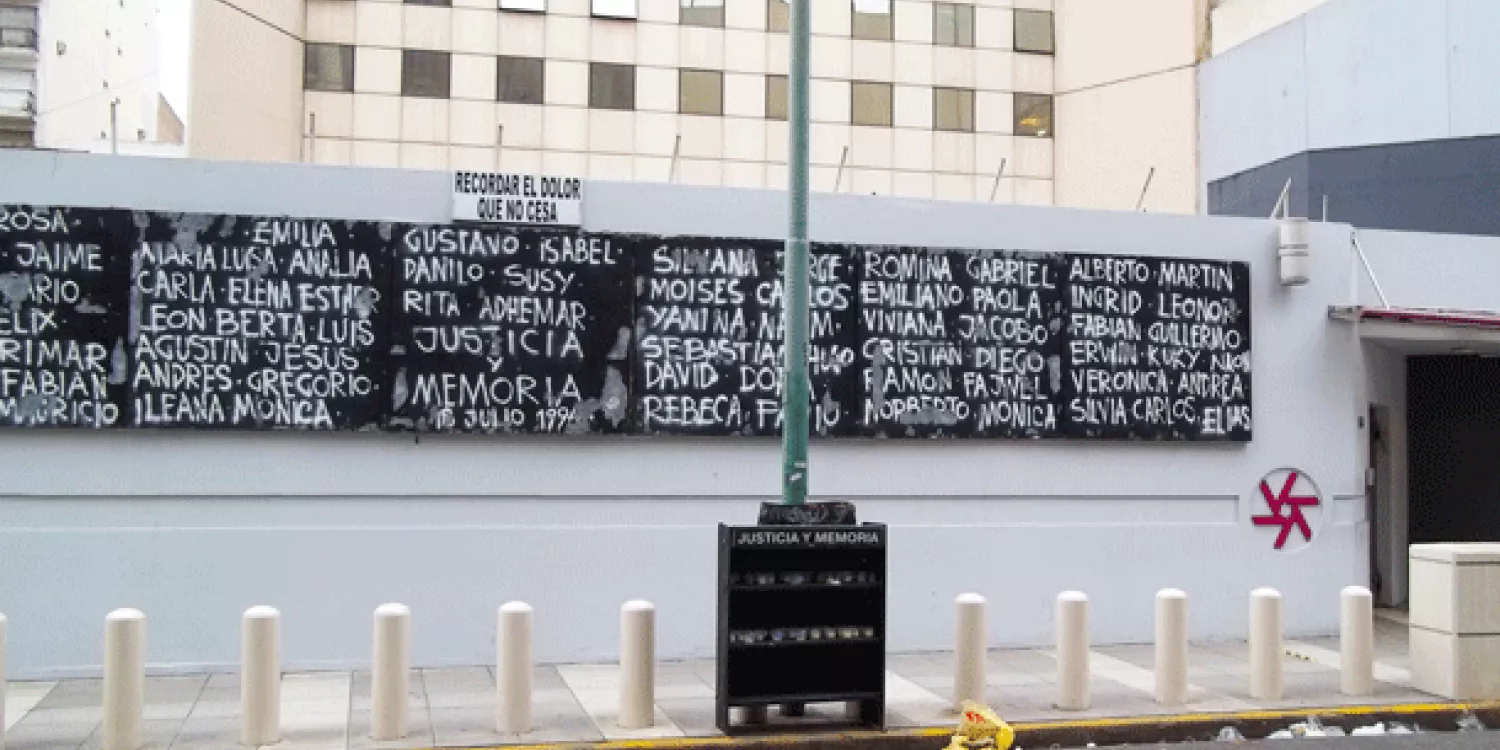 RECORDAR EL DOLOR
QUE NO CESA
ROSA
JAIME
FABIAN
MAURICIO
EMILIA
MARIA LUISA · ANALIA
CARLA · ELENA ESTHER
LEON BERTA · LUIS
AGUSTIN JESUS
ANDRES · GREGORIO
ILEANA MONICA
GUSTAVO · ISABEL
DANILO · SUSY
RITA ADHEMAR
JUSTICIA
Y
MEMORIA
18 JULIO 1994
SILVANA JORGE
MOISES CARLOS
YANINA
SEBASTIAN
DAVID
REBECA
ROMINA GABRIEL
EMILIANO PAOLA
VIVIANA JACOBO
CRISTIAN DIEGO
RAMON FAJWEL
NORBERTO MONICA
ALBERTO MARTIN
INGRID LEONOR
FABIAN GUILLERMO
ERWIN · KUKY
VERONICA · ANDREA
SILVIA CARLOS ELIAS
JUSTICIA Y MEMORIA